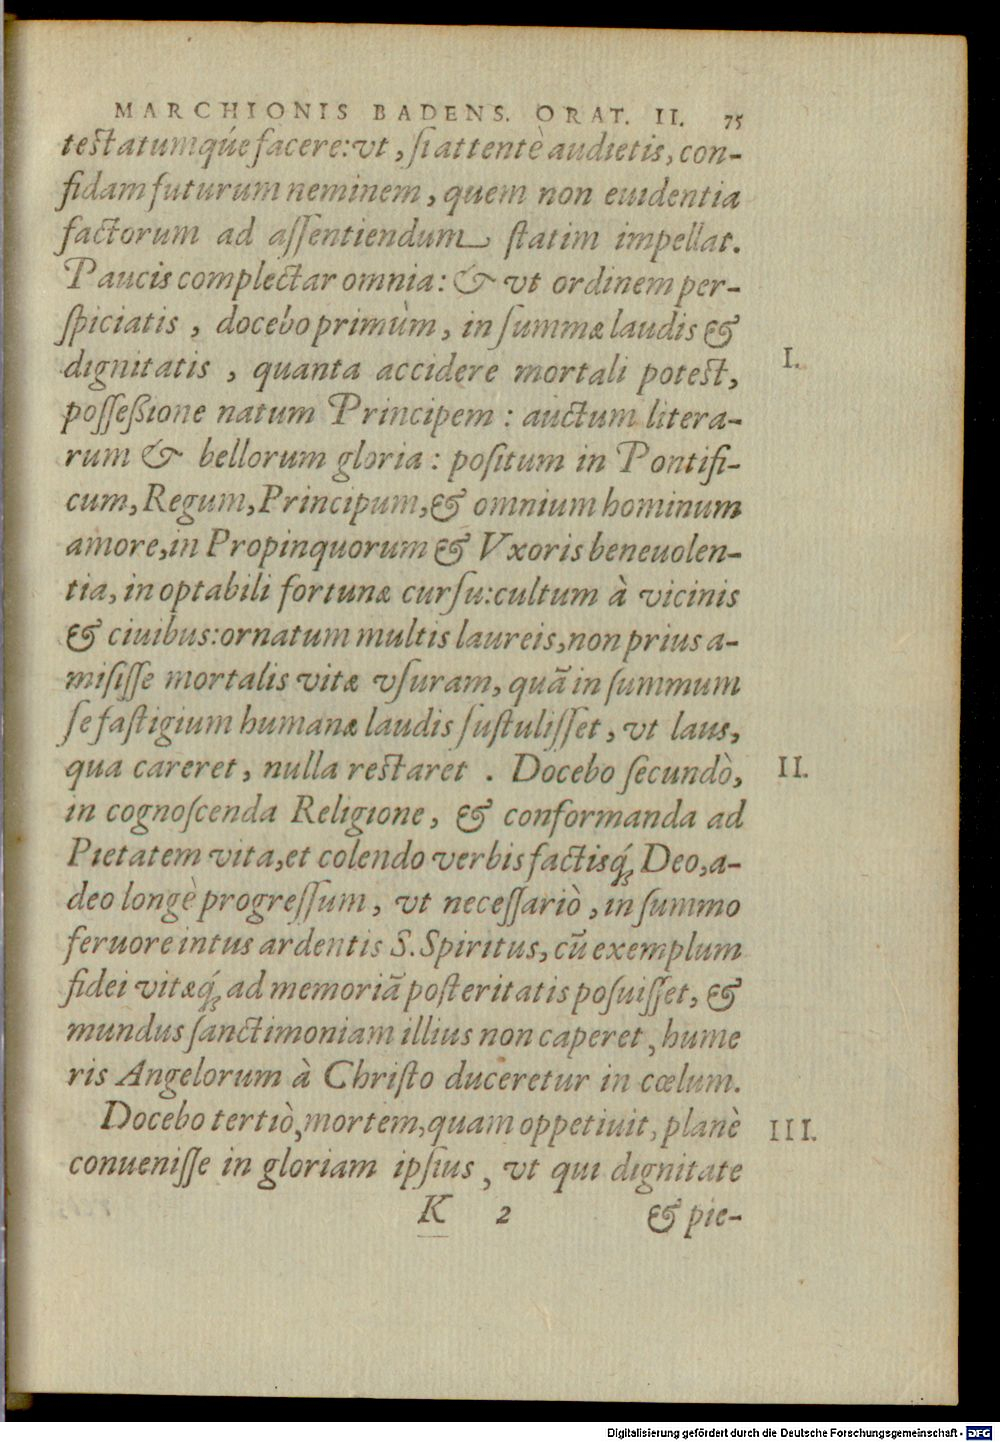 MARCHIONIS BADENS. ORAT. II. 75
testatumqúe facere: vt, si attentè audietis, con-
fidam futurum neminem, quem non euidentia
factorum ad assentiendum statim impellat.
Paucis complectar omnia: & vt ordinem per-
spiciatis, docebo primùm, in summæ laudis &
dignitatis, quanta accidere mortali potest,
I.
possessione natum Principem: auctum litera-
rum & bellorum gloria: positum in Pontifi-
cum, Regum, Principum, & omnium hominum
amore, in Propinquorum & Vxoris beneuolen-
tia, in optabili fortunæ cursu: cultum à vicinis
& ciuibus: ornatum multis laureis, non prius a-
misisse mortalis vitæ vsuram, quã in summum
se fastigium humanæ laudis sustulisset, vt laus,
qua careret, nulla restaret. Docebo secundò,
II.
in cognoscenda Religione, & conformanda ad
Pietatem vita, et colendo verbis factisq́; Deo, a-
deo longè progressum, vt necessariò, in summo
feruore intus ardentis S. Spiritus, cũ exemplum
fidei vitæq́; ad memoriã posteritatis posuisset, &
mundus sanctimoniam illius non caperet, hume
ris Angelorum à Christo duceretur in cœlum.
Docebo tertiò, mortem, quam oppetiuit, planè
III.
conuenisse in gloriam ipsius, vt qui dignitate
K 2 & pie-
Digitalisierung gefördert durch die Deutsche Forschungsgemeinschaft - DFG